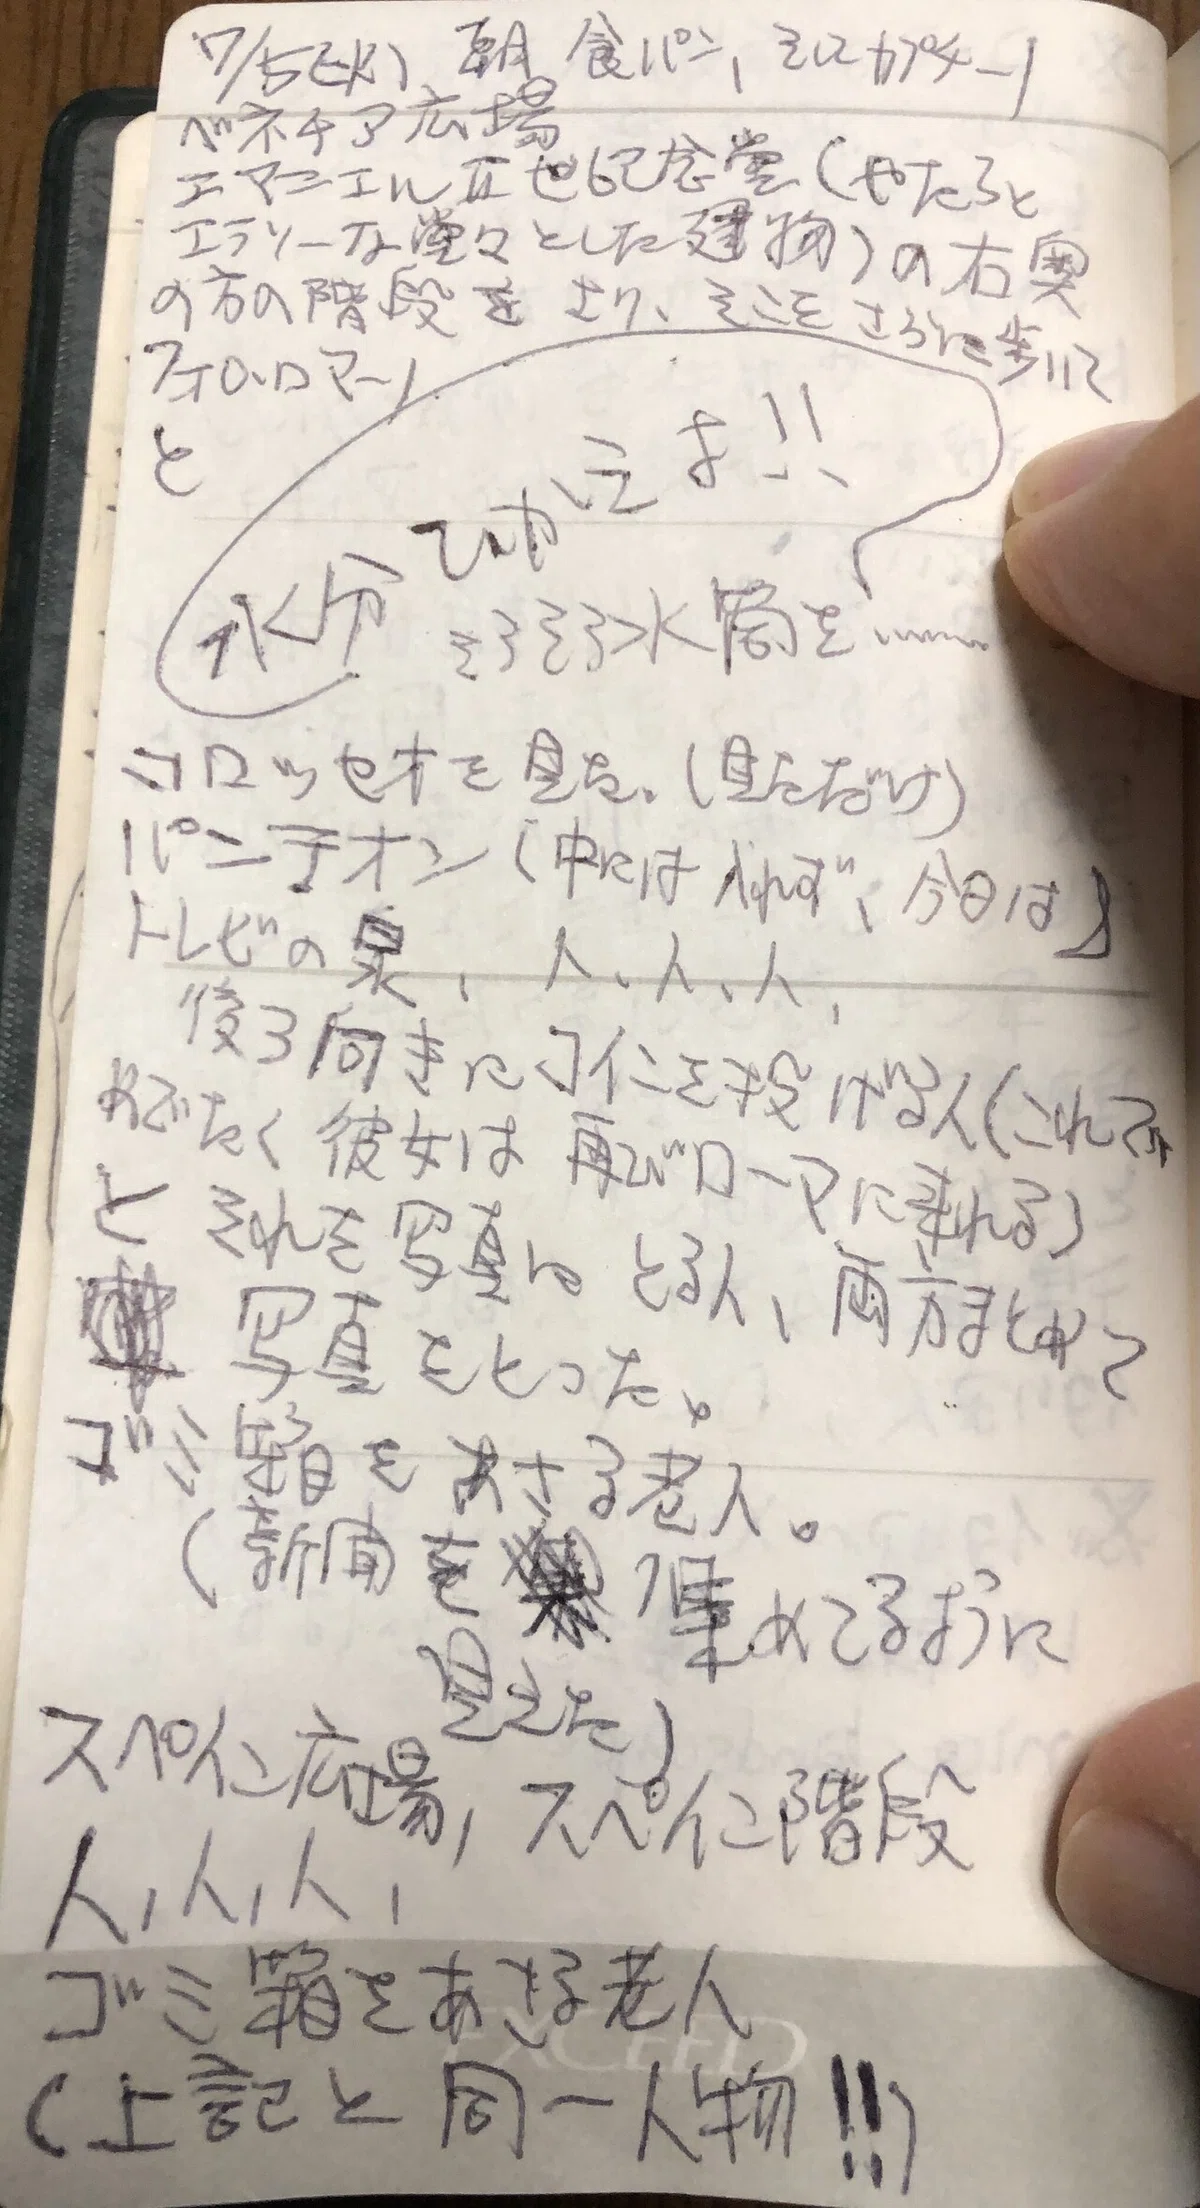 7/5(火)、朝 食パン、そしてカプチーノ
ベネチア広場
エマニエルⅡ世記念堂(やたらと
エラソーな堂々とした建物)の右奥
の方の階段を 上り、そこをさらに歩いて
フォロ・ロマーノ
と
水分 ひかえよ!!
そろそろ水筒を……
コロッセオを見た。(見ただけ)
パンテオン(中には入れず、今日は)
トレビの泉、人、人、人、
後ろ向きにコインを投げる人(これで
めでたく彼女は再びローマに来れる)
と それを写真に とる人、両方まとめて
写真をとった。
ゴミ箱をあさる老人。
(新聞を 集めてるように
見えた)
スペイン広場、スペイン階段
人、人、人、
ゴミ箱をあさる老人
(上記と同一人物!!)
EXCEED